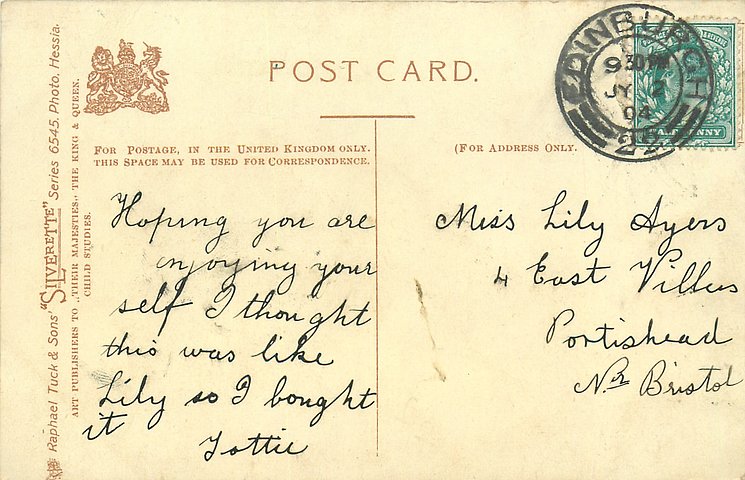 POST CARD.
FOR POSTAGE, IN THE UNITED KINGDOM ONLY.
THIS SPACE MAY BE USED FOR CORRESPONDENCE.
(FOR ADDRESS ONLY.
Hoping you are
enjoying your
self I thought
this was like
Lily so I bought
it
Tottie
Miss Lily Ayers
4 East Villas
Portishead
Nr Bristol
EDINBURGH
9 30 PM
JY
04
22
HALFPENNY
Raphael Tuck & Sons' "SILVERETTE" Series 6545. Photo. Hessia.
ART PUBLISHERS TO „THEIR MAJESTIES„ THE KING & QUEEN.
CHILD STUDIES.